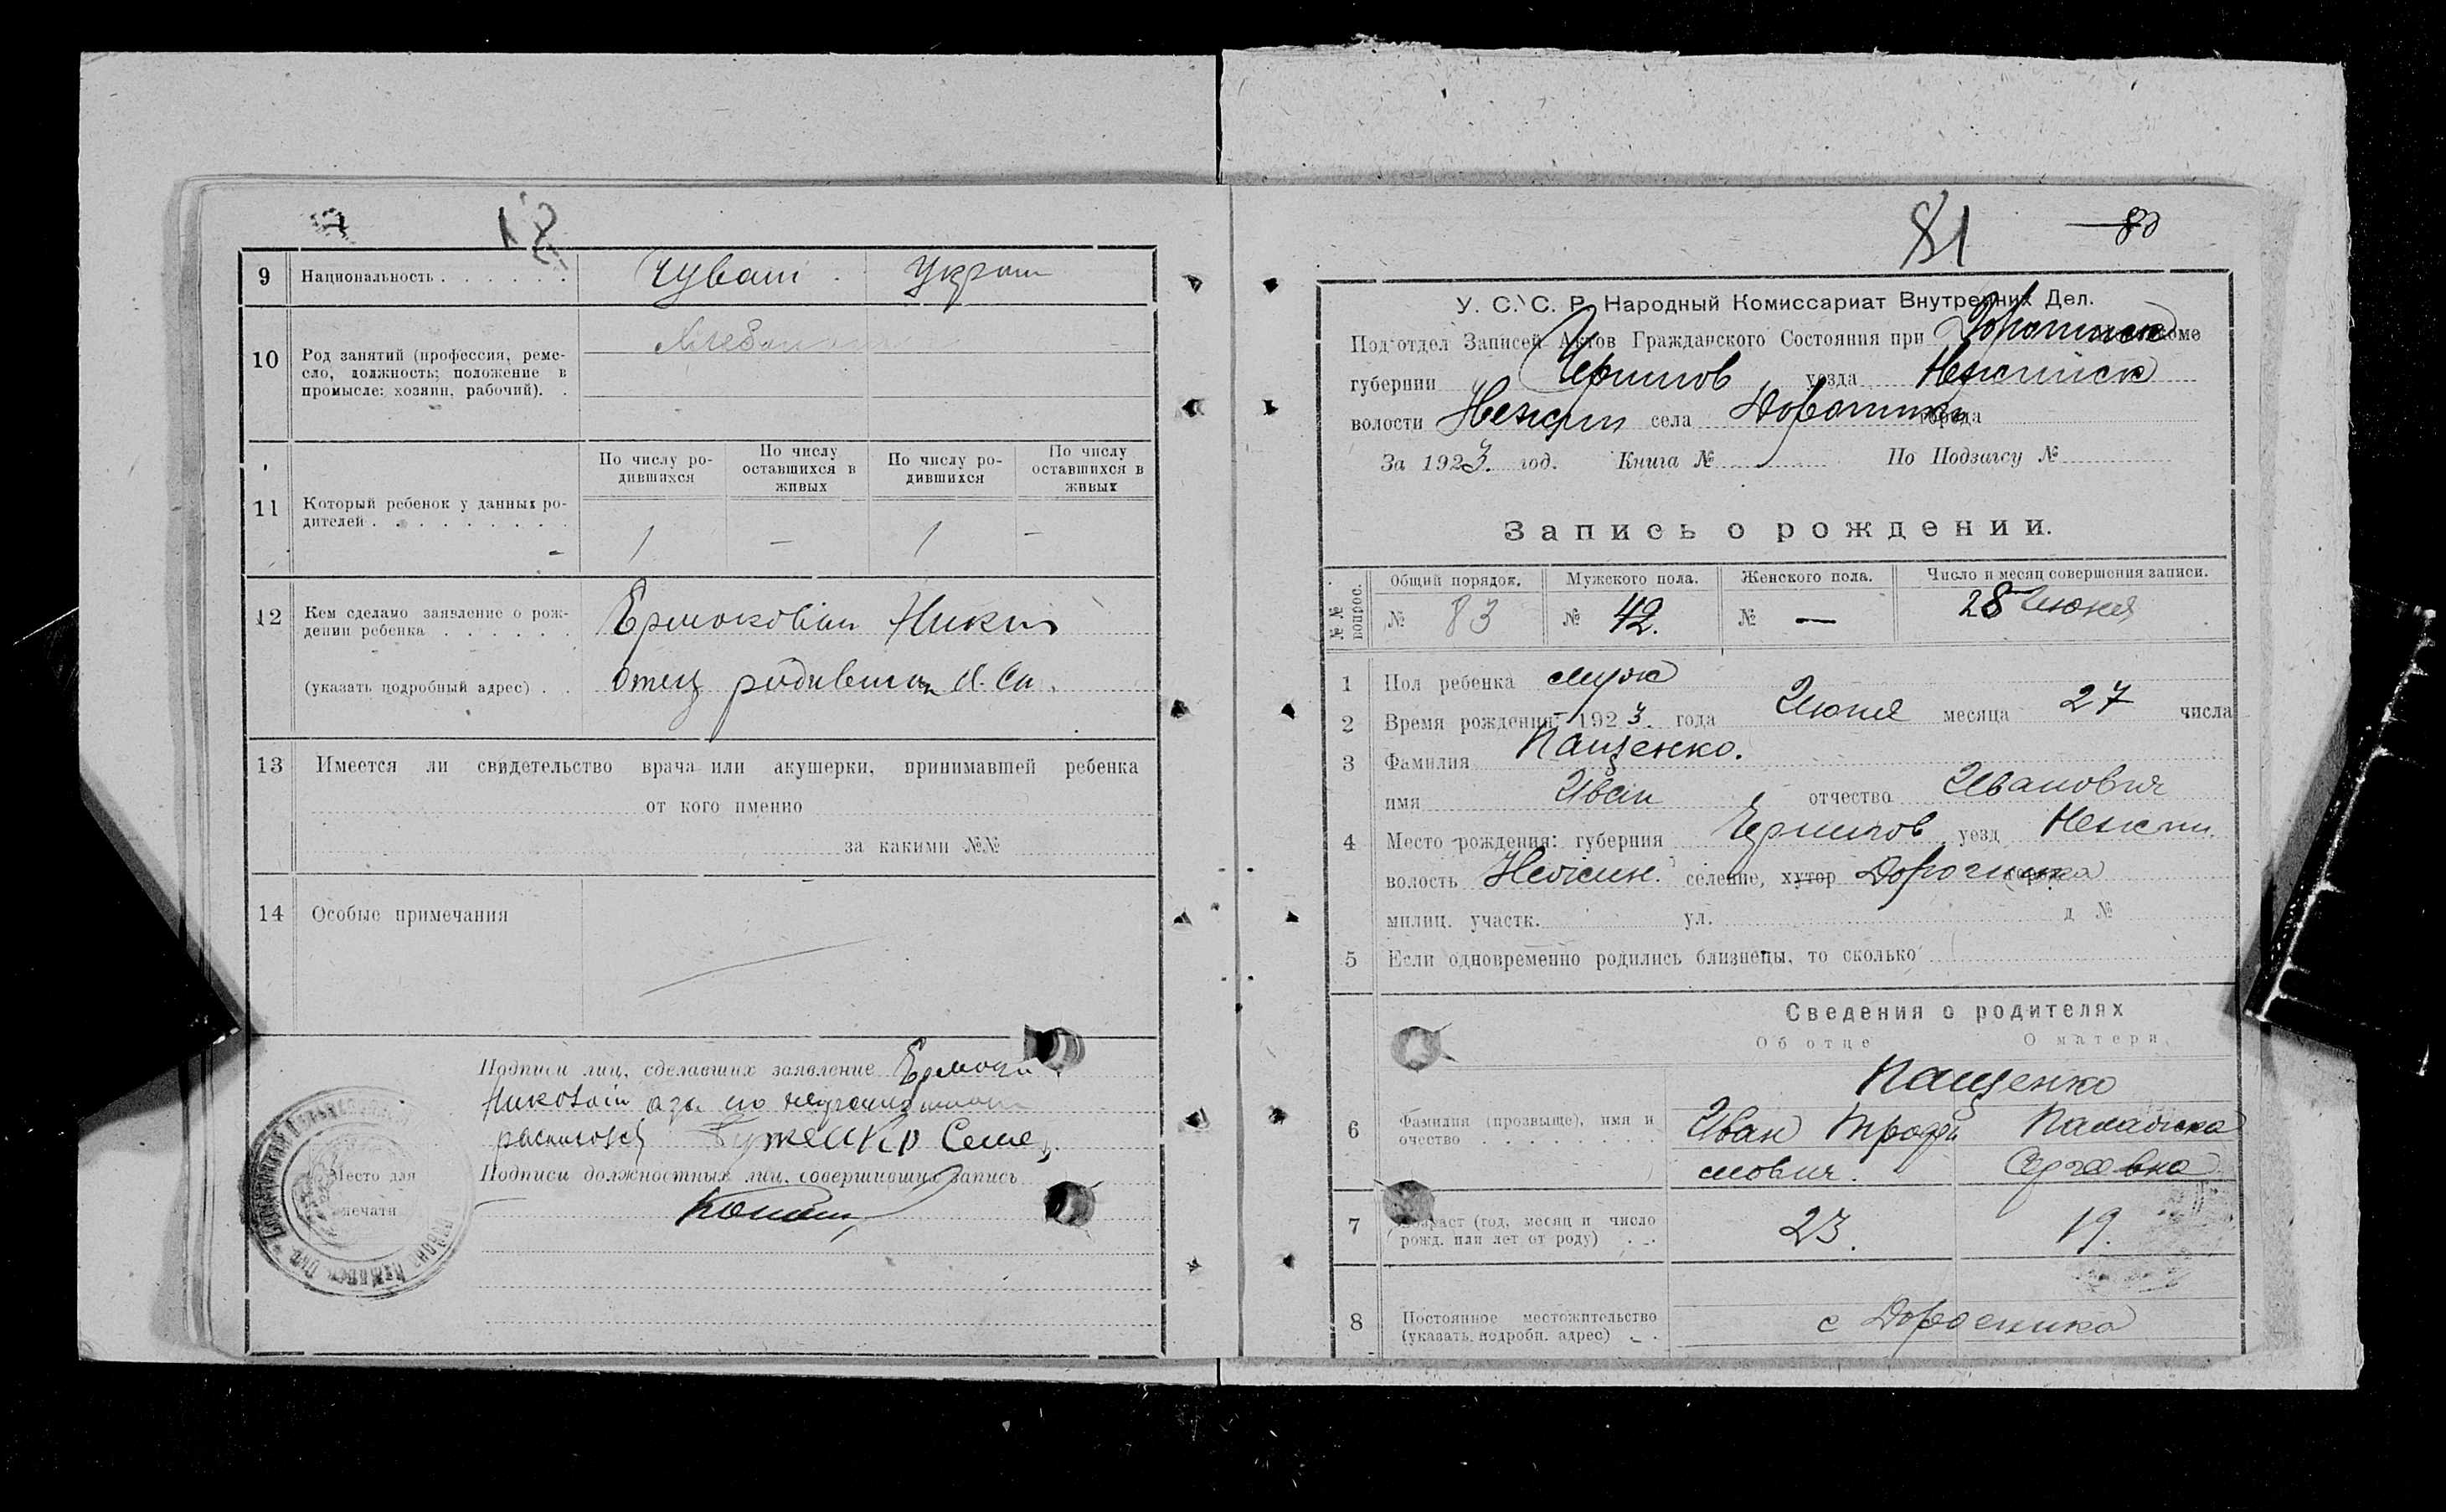 9 Национальность . . . . . . Чуваш . Украин
10 Род занятий (профессия, реме-
сло, должность; положение в
промысле: хозяин, рабочий). .
По числу ро-
дившихся
По числу
оставшихся в
живых
По числу ро-
дившихся
По числу
оставшихся в
живых
11 Который ребенок у данных ро-
дителей . . . . . . . . .
1 — 1 —
12 Кем сделано заявление о рож-
дении ребенка . . . . . .
(указать подробный адрес) . . отец
13 Имеется ли свидетельство врача или акушерки, принимавшей ребенка
от кого именно
за какими №№
14 Особые примечания
Подписи лиц, сделавших заявление
Подписи должностных лиц, совершивших запись
Место для
печати
81 80
У. С. С. Р. Народный Комиссариат Внутренних Дел.
Под'отдел Записей Актов Гражданского Состояния при
губернии Чернигов уезда Нежинск
волости Нежин села города
За 1923. год. Книга № По Подзагсу №
Запись о рождении.
№№ вопрос.
Общий порядок. Мужского пола. Женского пола. Число и месяц совершения записи.
№ 83 № 42. № — 28 Июня
1 Пол ребенка муж
2 Время рождения 1923. года Июня месяца 27 числа
3 Фамилия Пащенко.
имя Иван отчество Иванович
4 Место рождения: губерния Чернигов уезд Нежин.
волость Нежин. селение, хутор Дорогинка
милиц. участк. ул. д №
5 Если одновременно родились близнецы, то сколько
Сведения о родителях
Об отце О матери
Пащенко
6 Фамилия (прозвище), имя и
очество . . . . . . .
Иван Трофи Палажка
мович. Сергеевна
7 Возраст (год, месяц и число
рожд. или лет от роду) . .
23. 19.
8 Постоянное местожительство
(указать, подробн. адрес) . .
с Дорогинка